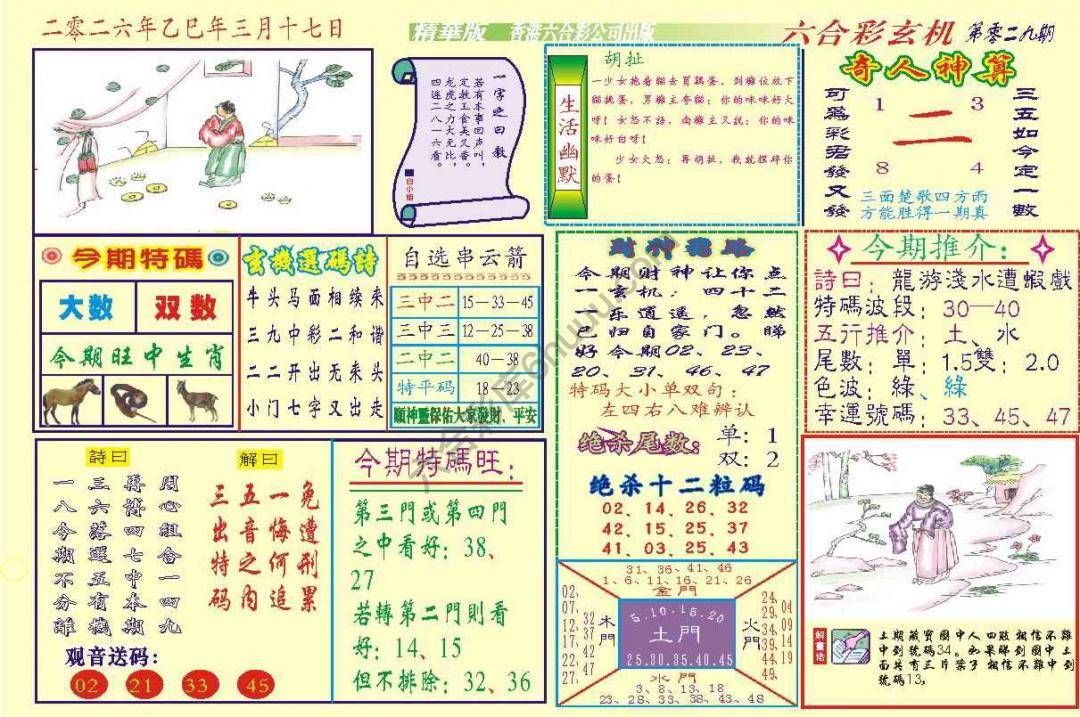 二零二六年乙巳年三月十七日
精華版 香港六合彩公司出版
六合彩玄机 第零二九期
一字之曰数
若有本事回声叫，
定教玉食美又香。
龙虎之力大无比，
四连二八一六看。
白小姐
生活幽默
胡扯
一少女抱着貓去買鷄蛋，到攤位放下
貓挑蛋，男攤主夸貓：你的咪咪好大
呀！女怒不語，
你的咪
咪好白呀！
少女大怒：再胡扯，我就捏碎你
的蛋！
奇人神算
可爲彩君發又發
1 3
二
8 4
三五如今定一數
三面楚歌四方雨
方能胜得一期真
今期特碼
大数 双数
今期旺中生肖
玄機選碼詩
牛头马面相续来
三九中彩二和谐
二二开出无来头
小门七字又出走
自选串云箭
三中二 15—33—45
三中三 12—25—38
二中二 40—38
特平码 18—23
願神靈保佑大家發財、平安
财神
今期财神让你点
一玄机：四十二
一乐逍遥，忽然
已归自家门。睇
好今期02、23、
20、31、46、47
特码大小单双句：
左四右八难辨认
绝杀尾数：
单：1
双：2
绝杀十二粒码
02、14、26、32
42、15、25、37
41、03、25、43
今期推介：
詩曰：龍游淺水遭蝦戲
特碼波段：30—40
五行推介：土、水
尾數：單：1.5雙：2.0
色波：綠、綠
幸運號碼：33、45、47
詩曰
一三再周
八六博心
今落四組
期選七合
不五中一
分有本四
離機期九
解曰
三五一免
出音悔遭
特之何刑
码内追累
观音送码：
02 21 33 45
今期特碼旺：
第三門或第四門
之中看好：38、
27
若轉第二門則看
好：14、15
但不排除：32、36
31、36、41、46
1、6、11、16、21、26
金門
02、07、12、17、22、27、
32、37、42、47
木門
5.10.15.20
土門
25.30.35.40.45
火門
24、29、34、39、44、49
04、09、14、19
水門
3、8、13、18
23、28、33、38、43、48
解畫佬
土期藏寶圖中人四肢相信不難
中到號碼34。如果睇到圖中土
面共有三片葉子相信不難中到
號碼13。